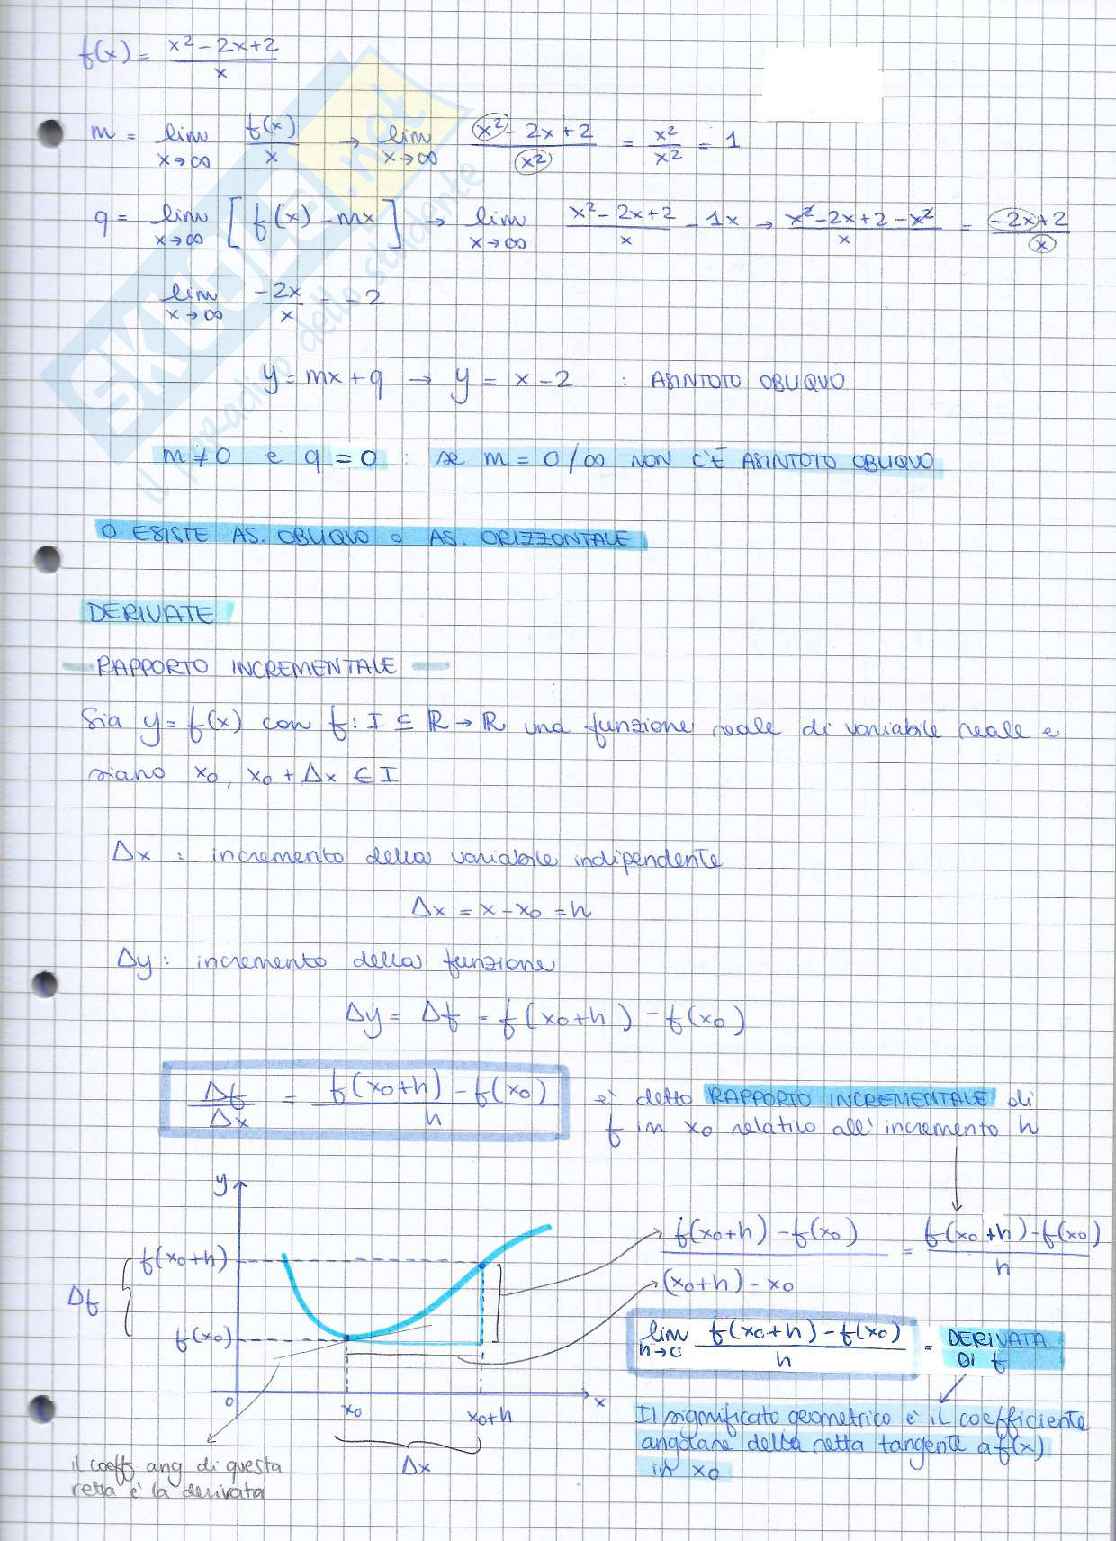 f(x) = x² - 2x + 2 / x
m = lim x→∞ f(x)/x → lim x→∞ x² - 2x + 2 / x² = x²/x² = 1
q = lim x→∞ [f(x) - mx] → lim x→∞ x² - 2x + 2 / x - 1x → x² - 2x + 2 - x² / x = -2x + 2 / x
lim x→∞ -2x/x = -2
y = mx + q → y = x - 2 : ASINTOTO OBLIQUO
m ≠ 0 e q = 0 : se m = 0/∞ NON C'È ASINTOTO OBLIQUO
O ESISTE AS. OBLIQUO O AS. ORIZZONTALE
DERIVATE
- RAPPORTO INCREMENTALE -
Sia y = f(x) con f: I ⊆ R → R una funzione reale di variabile reale e
siano x0, x0 + Δx ∈ I
Δx : incremento della variabile indipendente
Δx = x - x0 = h
Δy : incremento della funzione
Δy = Δf = f(x0+h) - f(x0)
Δf/Δx = f(x0+h) - f(x0) / h è detto RAPPORTO INCREMENTALE di
f in x0 relativo all'incremento h
y
f(x0+h)
Δf
f(x0)
0
x0
x0+h
x
Δx
il coeff ang di questa
retta è la derivata
f(x0+h) - f(x0) / (x0+h) - x0 = f(x0+h) - f(x0) / h
lim h→0 f(x0+h) - f(x0) / h = DERIVATA
DI f
Il significato geometrico è il coefficiente
angolare della retta tangente a f(x)
in x0
SKUOLA.net
il paradiso dello studente